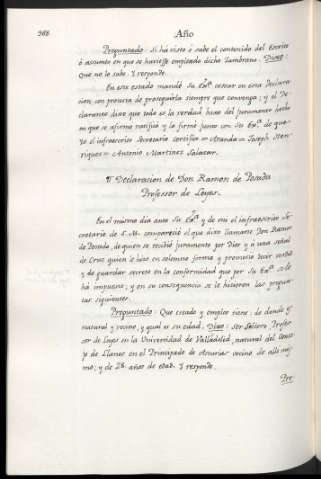 Año
Preguntado: Si há visto ó sabe el contenido del Escrito
ó asunto en que se huviesse empleado dicho Zambrano. Dixo:
Que no le sabe. Y responde.
En este estado mandó Su Exª. cesar en esta Declara-
cion con protexta de proseguirla siempre que convenga; y el De-
clarante dixo que todo es la verdad baxo del juramento hecho
en que se afirmó ratificó y la firmó junto con Su Exª. de que
Yo el infraescrito Secretario certifico = Aranda = Joseph Hen-
riquez = Antonio Martinez Salazar.
Declaracion de Don Ramon de Posada
Professor de Leyes.
En el mismo dia ante Su Exª. y de mi el infraescrito Se-
cretario de S.M. compareció el que dixo llamarse Don Ramon
de Posada, de quien se recibió juramento por Dios y á una señal
de Cruz quien le hizo en solemne forma y prometió decir verdad
y de guardar secreto en la conformidad que por Su Exª. se le
há impuesto; y en su consequencia se le hicieron las pregun-
tas siguientes.
Preguntado: Que estado y empleo tiene; de donde es
natural y vecino, y qual es su edad. Dixo: Ser Soltero, Profes-
sor de Leyes en la Universidad de Valladolid, natural del Conce-
jo de Llanes en el Principado de Asturias vecino de alli mis-
mo; y de 28. años de edad. Y responde.
Pre-